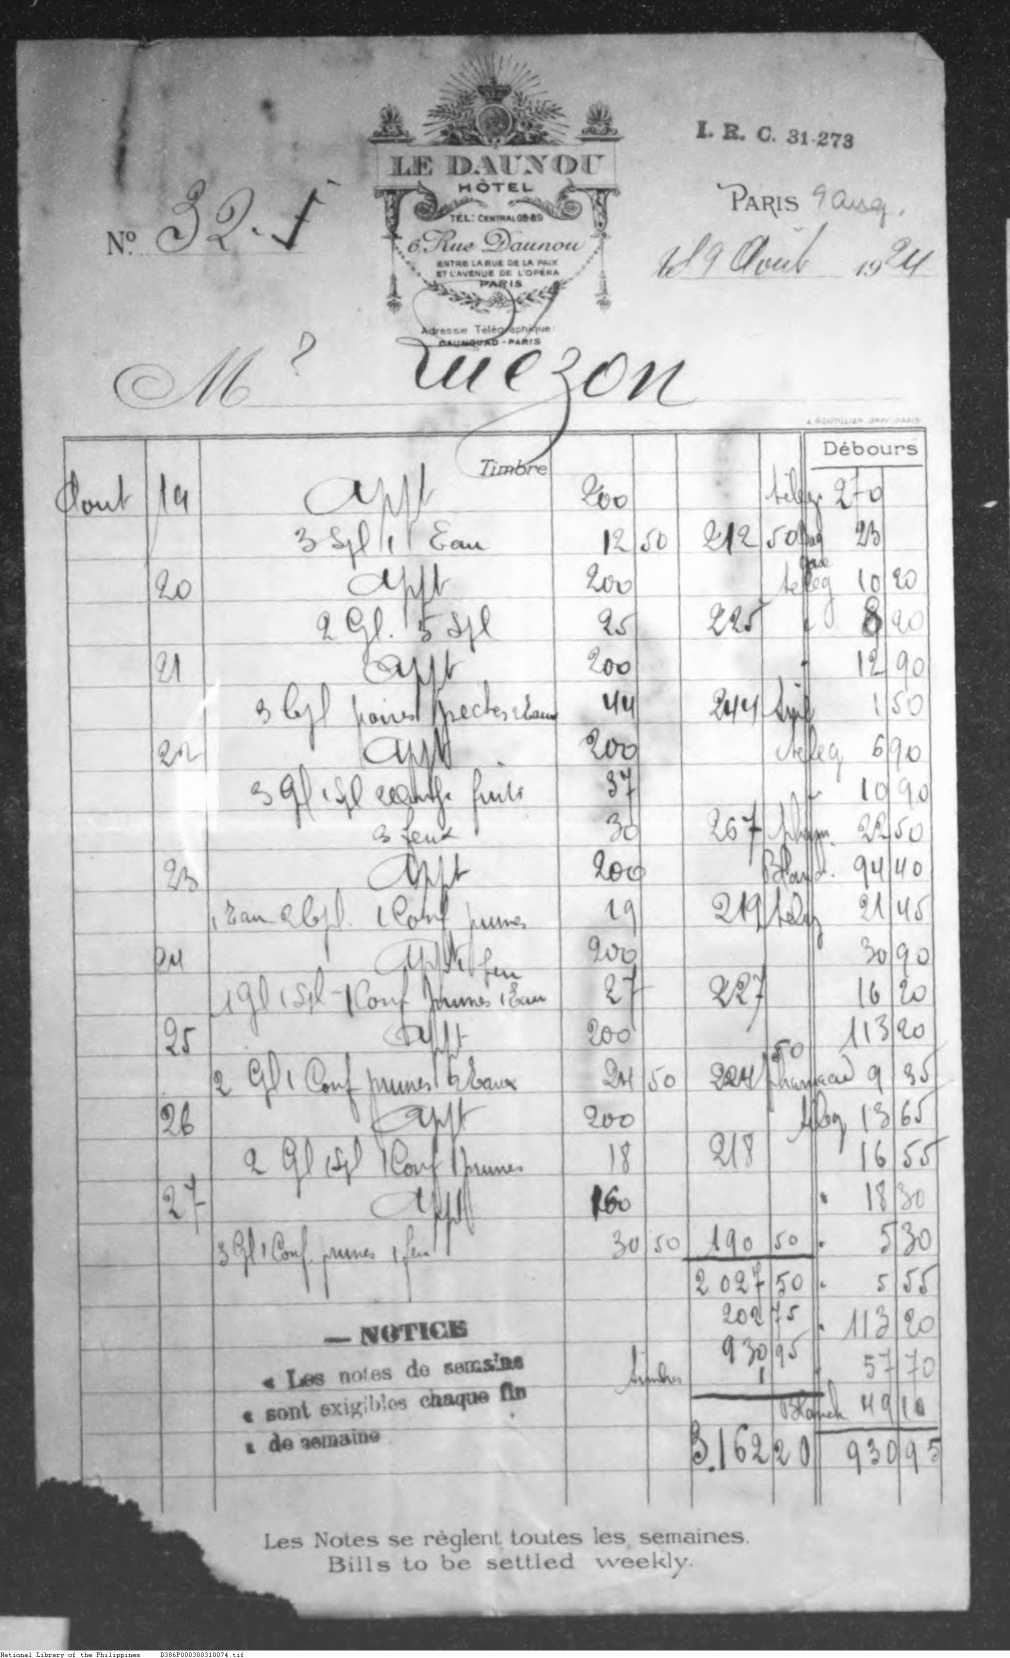 I. R. C. 31-273
LE DAUNOU
HÔTEL
TÉL: CENTRAL 08-89
6, Rue Daunou
ENTRE LA RUE DE LA PAIX
ET L'AVENUE DE L'OPÉRA
PARIS
Adresse Télégraphique:
DAUNOUAD-PARIS
No 32.
PARIS 9 aug.
19 Août 1924
Mr Quezon
Timbre
Débours
Aout 19 Appt 200 teleg 270
3 Spl 1 Eau 12 50 212 50 23
20 Appt 200 teleg 10 20
2 Gl. 5 Spl 25 225 " 8 20
21 Appt 200 " 12 90
3 poires 44 244 1 50
22 Appt 200 teleg 6 90
3 Gl 1 Spl fruits 37 " 10 90
3 feux 30 267 pharm. 22 50
23 Appt 200 Blanch. 94 40
1 Eau 1 Conf prunes 19 219 teleg 21 45
24 Appt 1 feu 200 30 90
1 Gl 1 Spl 1 Conf prunes 1 Eau 27 227 16 20
25 Appt 200 113 20
2 Gl 1 Conf prunes 2 Eaux 24 50 224 50 pharmacie 9 35
26 Appt 200 teleg 13 65
2 Gl 1 Spl 1 Conf prunes 18 218 16 55
27 Appt 160 " 18 30
3 Gl 1 Conf. prunes 1 feu 30 50 190 50 " 5 30
2 027 50 " 5 55
202 75 " 113 20
930 95 57 70
timbres 1
Blanch 49 10
3.162 20 930 95
— NOTICE
« Les notes de semaine
« sont exigibles chaque fin
« de semaine
Les Notes se règlent toutes les semaines.
Bills to be settled weekly.
National Library of the Philippines D386P000300310074.tif